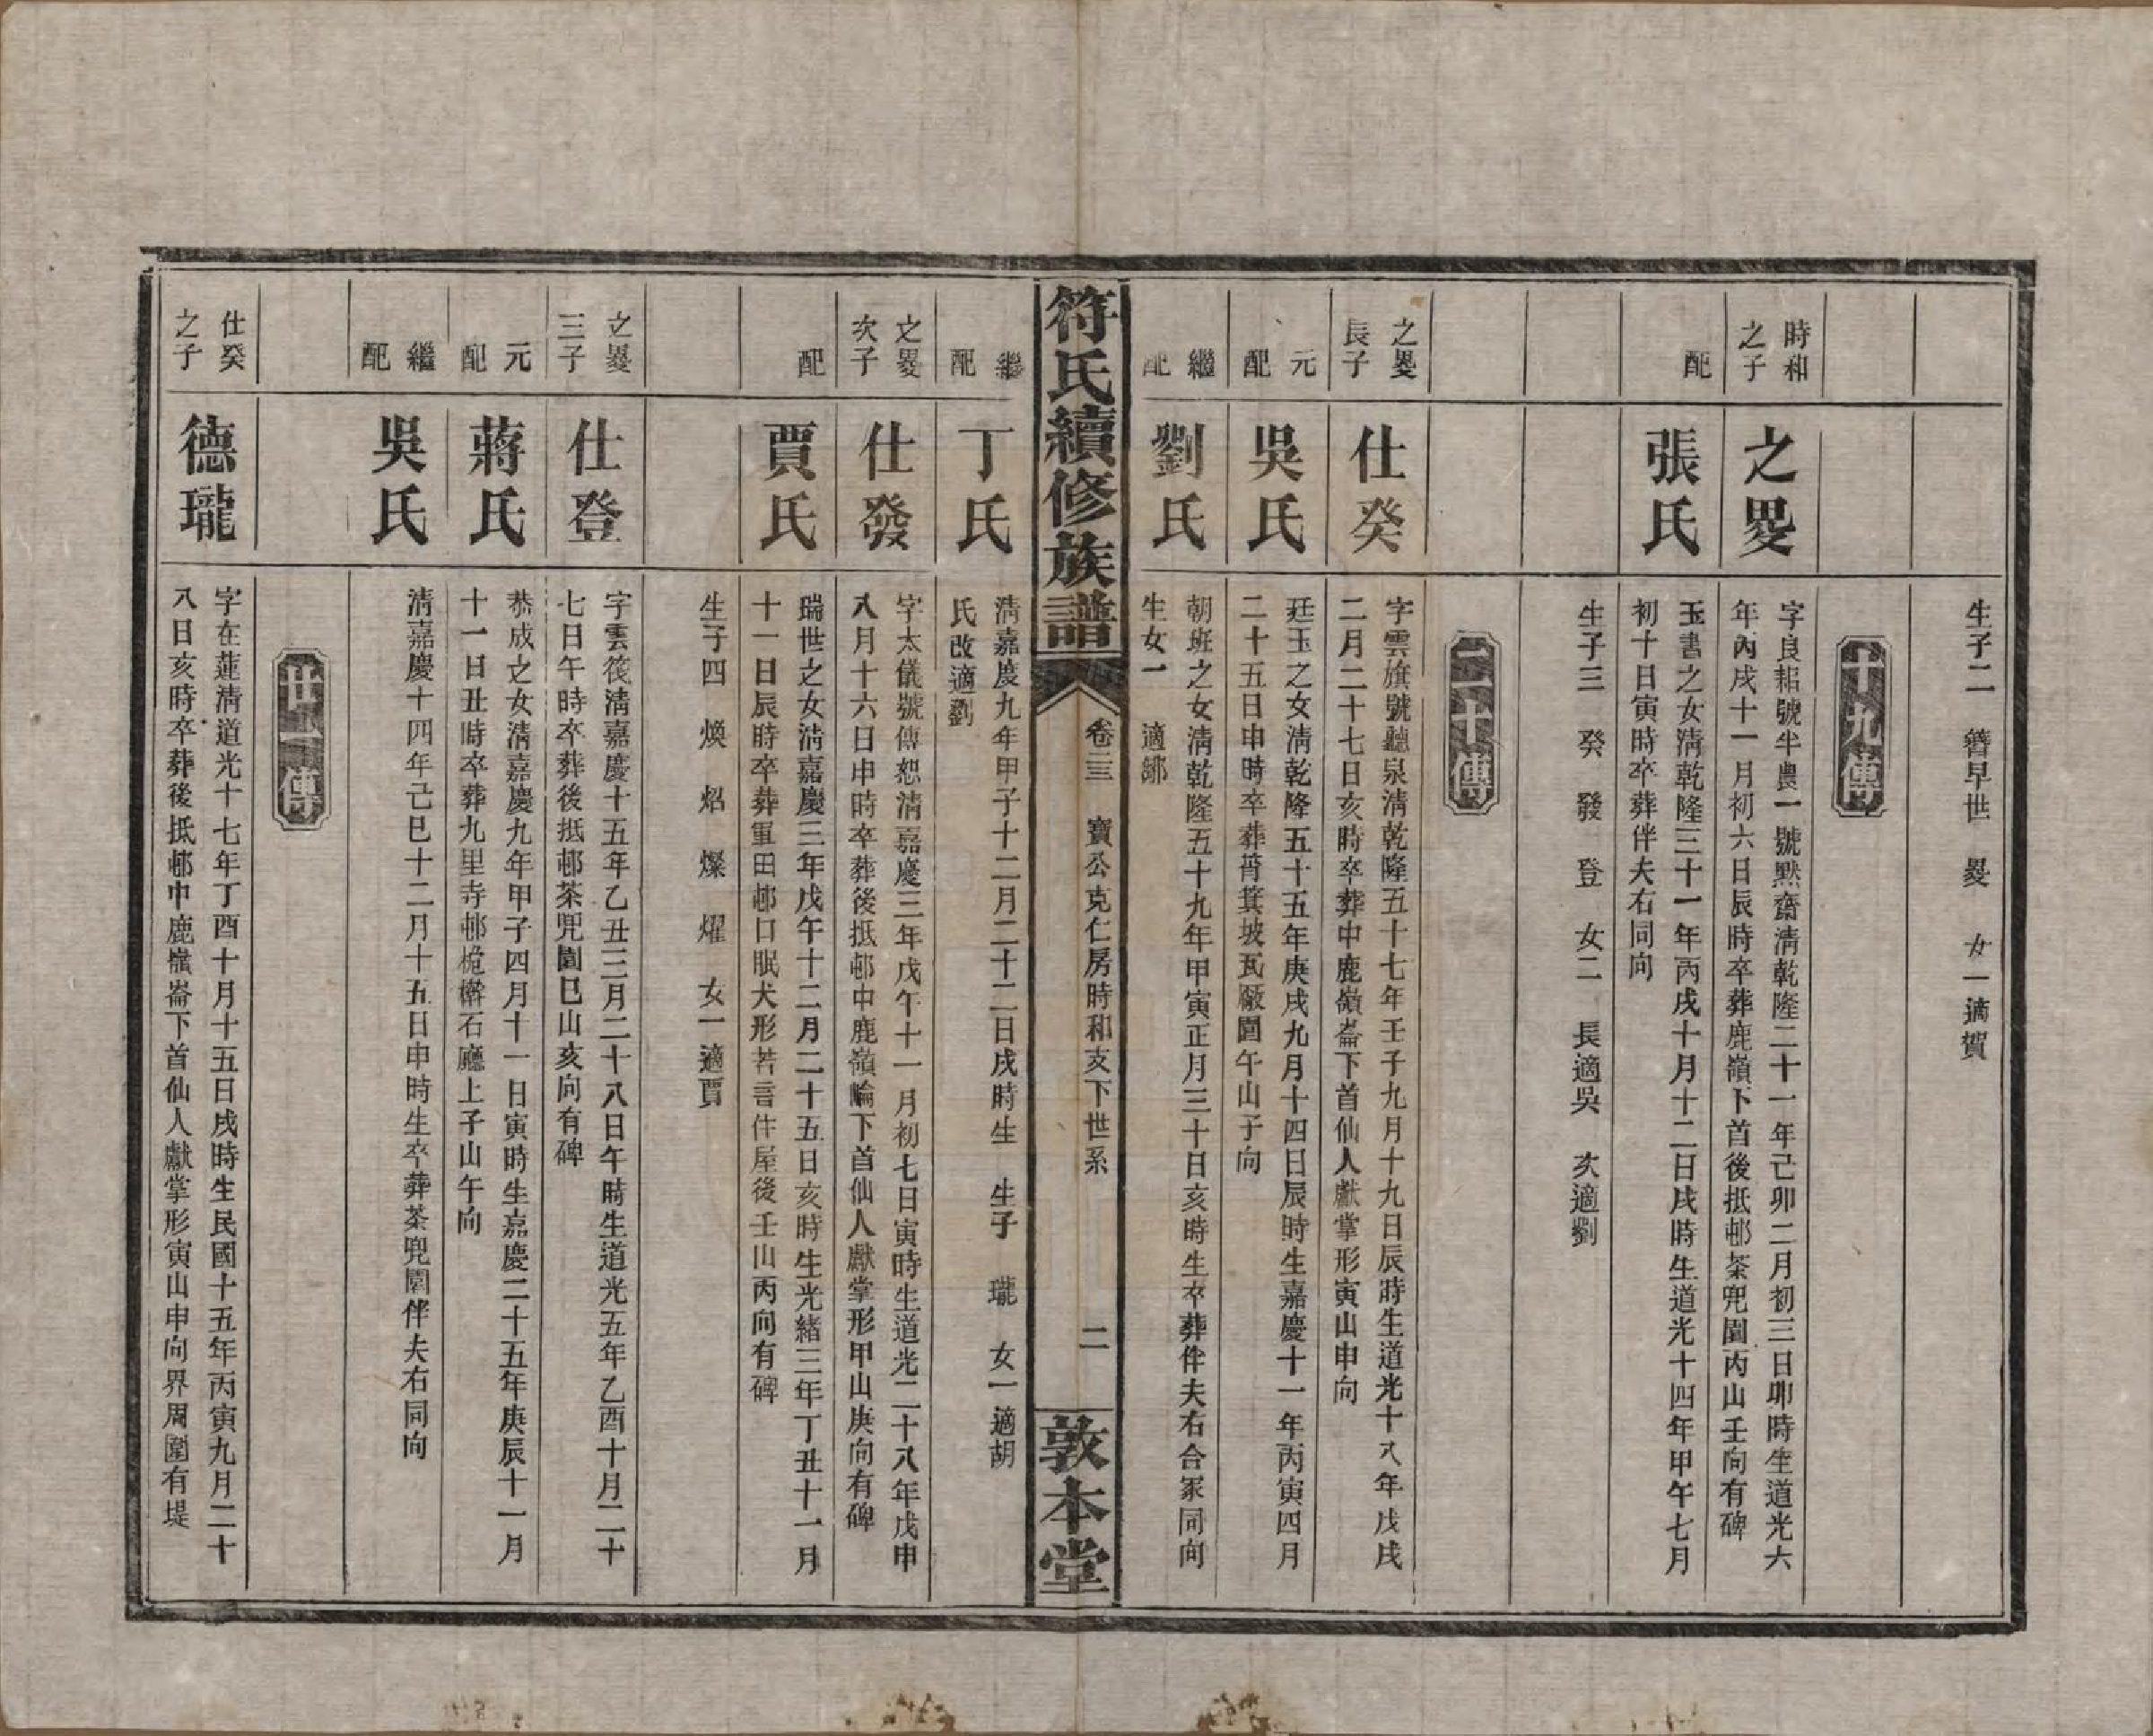 生子二 簪早世 畟 女一適賀
十九傳
時和之子
之畟
字良耜號半農一號默齋淸乾隆二十一年己卯二月初三日卯時生道光六
年丙戌十一月初六日辰時卒葬鹿嶺下首後抵邨茶兜園丙山壬向有碑
配
張氏
玉書之女淸乾隆三十一年丙戌十月十二日戌時生道光十四年甲午七月
初十日寅時卒葬伴夫右同向
生子三 癸 發 登 女二 長適吳 次適劉
二十傳
之畟長子
仕癸
字雲旗號聽泉淸乾隆五十七年壬子九月十九日辰時生道光十八年戊戌
二月二十七日亥時卒葬中鹿嶺崙下首仙人獻掌形寅山申向
元配
吳氏
廷玉之女淸乾隆五十五年庚戌九月十四日辰時生嘉慶十一年丙寅四月
二十五日申時卒葬筲箕坡瓦廠園午山子向
繼配
劉氏
朝班之女淸乾隆五十九年甲寅正月三十日亥時生卒葬伴夫右合冢同向
生女一 適鄒
符氏續修族譜
卷三 寶公克仁房時和支下世系
二
敦本堂
繼配
丁氏
淸嘉慶九年甲子十二月二十二日戌時生 生子 瓏 女一適胡
氏改適劉
之畟次子
仕發
字太儀號傳恕淸嘉慶三年戊午十一月初七日寅時生道光二十八年戊申
八月十六日申時卒葬後抵邨中鹿嶺崙下首仙人獻掌形甲山庚向有碑
配
賈氏
瑞世之女淸嘉慶三年戊午十二月二十五日亥時生光緖三年丁丑十一月
十一日辰時卒葬重田邨口眠犬形若言仵屋後壬山丙向有碑
生子四 煥 炤 燦 燿 女一適賈
之畟三子
仕登
字雲筏淸嘉慶十五年乙丑三月二十八日午時生道光五年乙酉十月二十
七日午時卒葬後抵邨茶兜園巳山亥向有碑
元配
蔣氏
恭成之女淸嘉慶九年甲子四月十一日寅時生嘉慶二十五年庚辰十一月
十一日丑時卒葬九里寺邨桅檊石廳上子山午向
繼配
吳氏
淸嘉慶十四年己巳十二月十五日申時生卒葬茶兜園伴夫右同向
廿一傳
仕癸之子
德瓏
字在蓮淸道光十七年丁酉十月十五日戌時生民國十五年丙寅九月二十
八日亥時卒葬後抵邨中鹿嶺崙下首仙人獻掌形寅山申向界周圍有堤